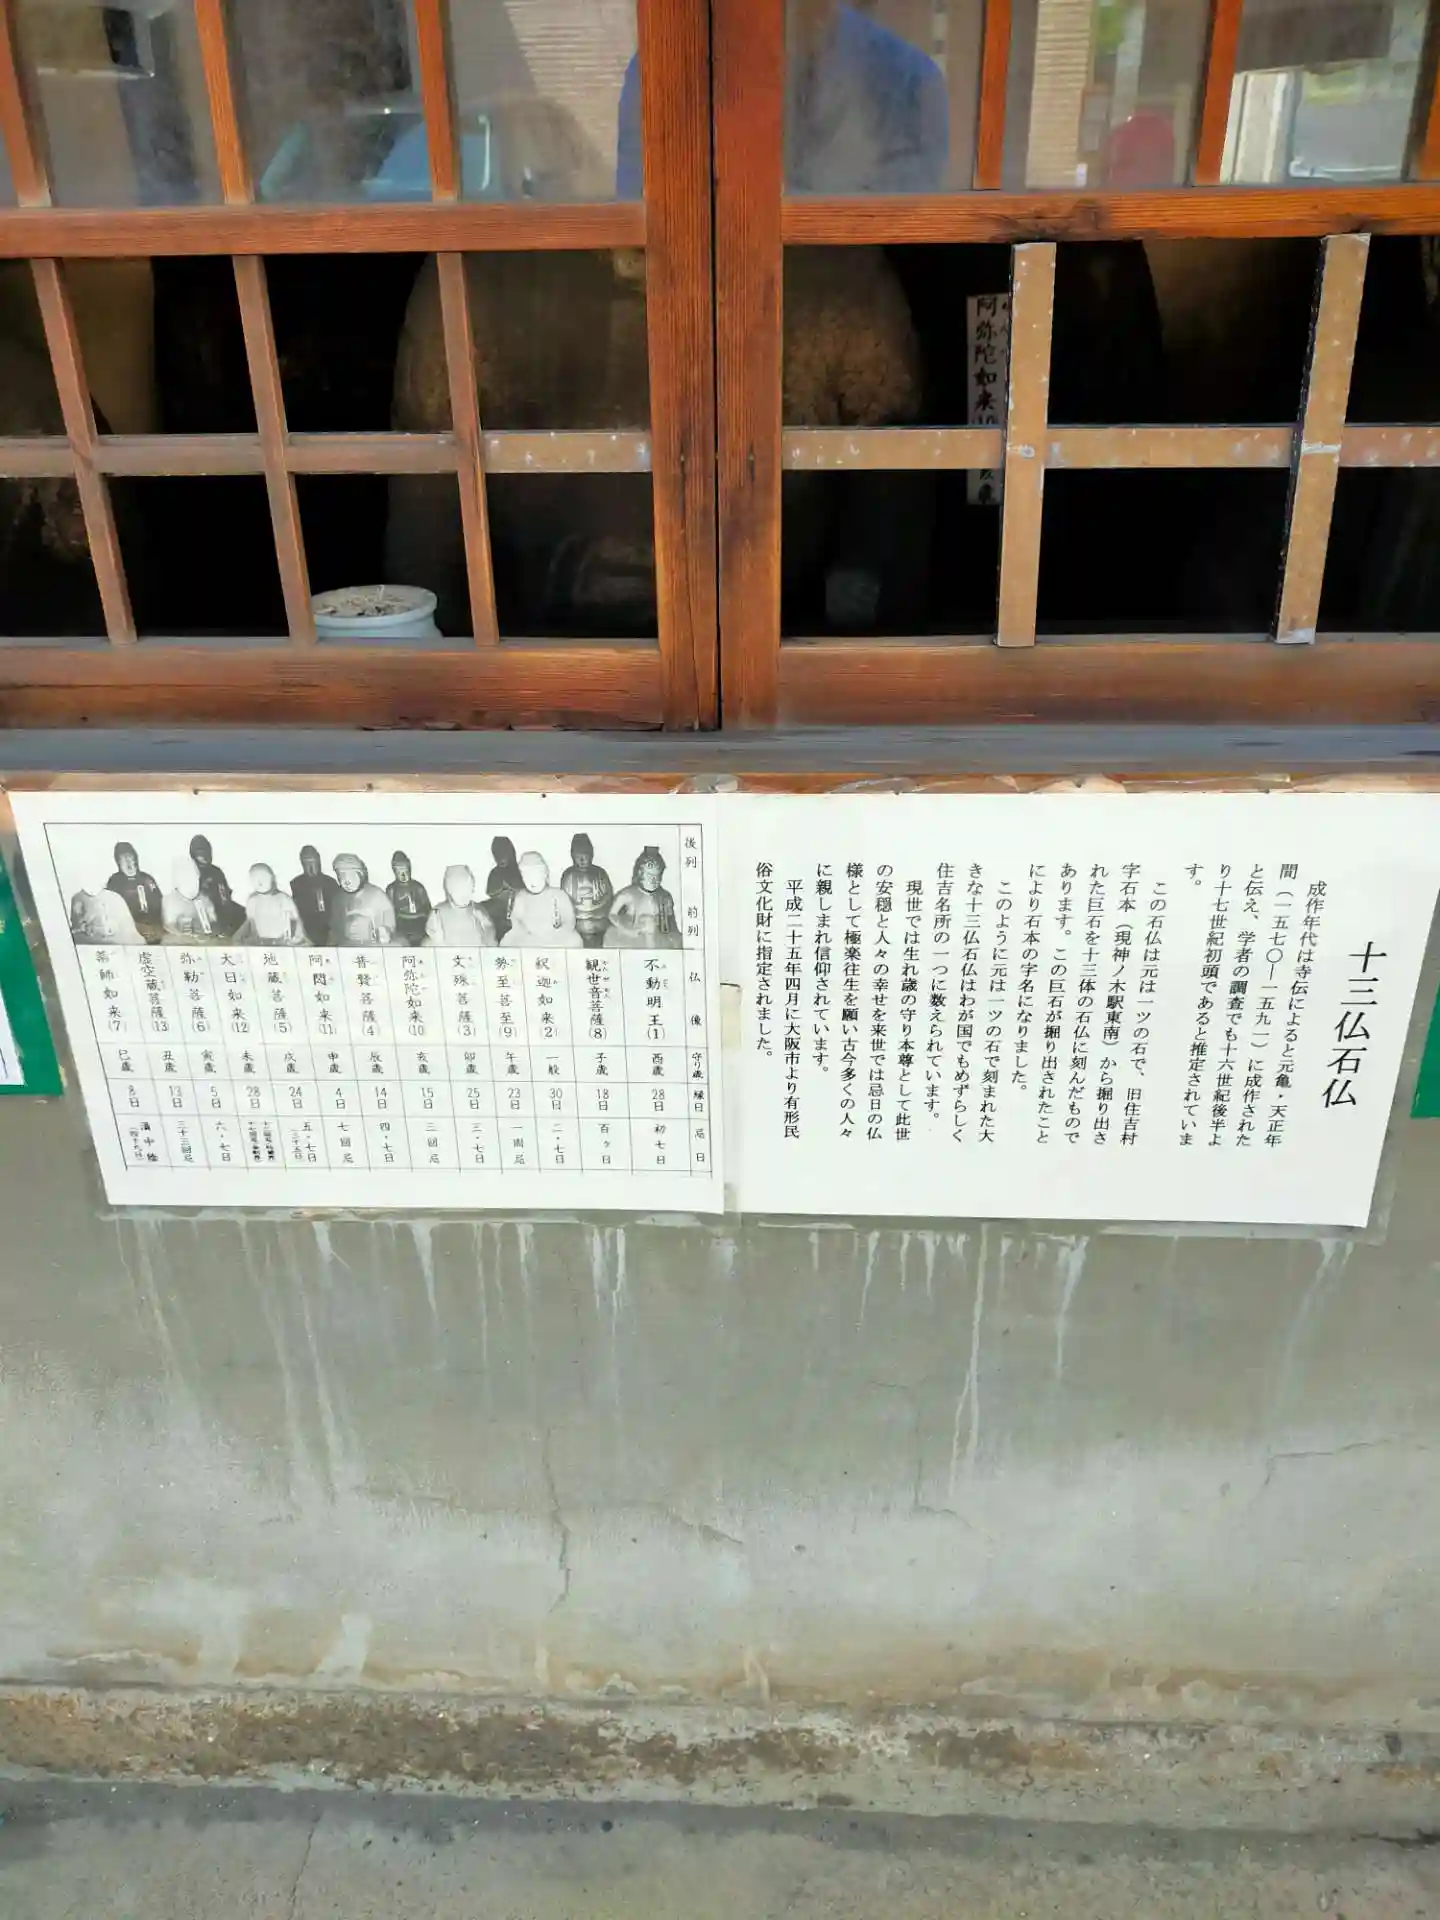 十三仏石仏
成作年代は寺伝によると元亀・天正年
間(一五七〇―一五九一)に成作された
と伝え、学者の調査でも十六世紀後半よ
り十七世紀初頭であると推定されていま
す。
この石仏は元は一ツの石で、旧住吉村
字石本(現神ノ木駅東南)から掘り出さ
れた巨石を十三体の石仏に刻んだもので
あります。この巨石が掘り出されたこと
により石本の字名になりました。
このように元は一ツの石で刻まれた大
きな十三仏石仏はわが国でもめずらしく
住吉名所の一つに数えられています。
現世では生れ歳の守り本尊として此世
の安穏と人々の幸せを来世では忌日の仏
様として極楽往生を願い古今多くの人々
に親しまれ信仰されています。
平成二十五年四月に大阪市より有形民
俗文化財に指定されました。
後列 前列 仏像 守り歳 縁日 忌日
不動明王(1) 酉歳 28日 初七日
観世音菩薩(8) 子歳 18日 百ヶ日
釈迦如来(2) 一般 30日 二・七日
勢至菩至(9) 午歳 23日 一周忌
文殊菩薩(3) 卯歳 25日 三・七日
阿弥陀如来(10) 亥歳 15日 三回忌
普賢菩薩(4) 辰歳 14日 四・七日
阿閦如来(11) 申歳 4日 七回忌
地蔵菩薩(5) 戌歳 24日 五・七日(三十五日)
大日如来(12) 未歳 28日
弥勒菩薩(6) 寅歳 5日 六・七日
虚空蔵菩薩(13) 丑歳 13日 三十三回忌
薬師如来(7) 巳歳 8日 満中陰(四十九日)
阿弥陀如来